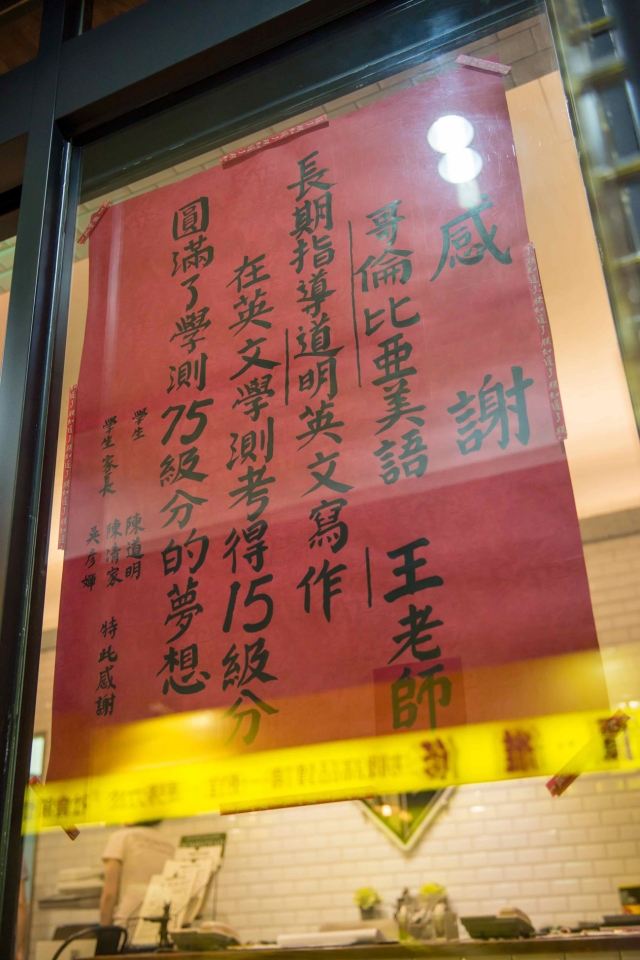 感謝
哥倫比亜美語 王老師
長期指導道明英文寫作
在英文學測考得15級分
圓滿了學測75級分的夢想
學生 陳道明
學生家長 陳清家
吳彥嬋
特此感謝